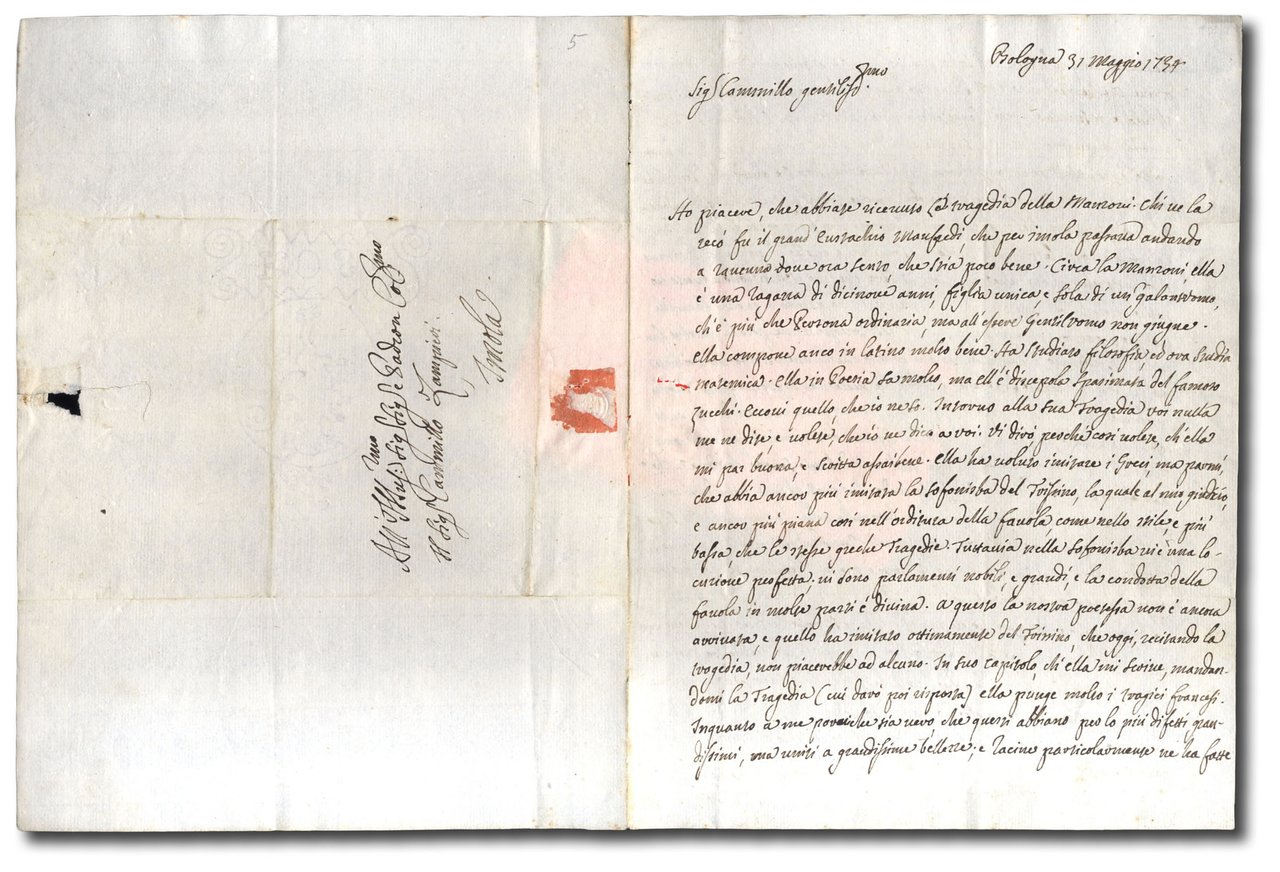 5
All' Illus:mo Sig Sig e Padron Col:mo
Il Sig Cammillo Zampieri.
Imola
Bologna 31 Maggio 1734
Sig Cammillo gentiliss.mo
Ho piacere, che abbiate ricevuto la tragedia della Manzoni. Chi ve la
recò fu il grand' Eustachio Manfredi, che per imola passava andando
a ravenna, dove ora sento che stia poco bene. Circa la Manzoni ella
é una ragazza di dicinove anni, figlia unica, e sola di un galantuomo,
ch'é più che Persona ordinaria, ma all'essere Gentiluomo non giugne.
ella compone anco in latino molto bene. Ha studiato filosofia ed ora studia
matemica. Ella in Poesia sa molto, ma ell'é discepola spasimata del famoso
zucchi. Eccovi quello che io ne so. Intorno alla sua Tragedia voi nulla
me ne dite, e volete, che io ne dica a voi. Vi dirò, perché così volete, ch'ella
mi par buona, e scritta assai bene. Ella ha voluto imitare i Greci ma parmi,
che abbia ancor più imitata la sofonisba del Trissino, la quale al mio giudizio,
e ancor più piana così nell'orditura della favola, come nello stile, e più
bassa, che le stesse greche Tragedie. Tuttavia nella sofonisba vi é una lo-
cuzione perfetta. vi sono parlamenti nobili, e grandi, e la condotta della
favola in molte parti é divina. a questo la nostra poetessa non é ancora
arrivata, e quello ha imitato ottimamente del Trissino, che oggi, recitando la
tragedia, non piacerebbe ad alcuno. In suo capitolo, ch'ella mi scrive, mandan-
domi la Tragedia (cui darò poi risposta) ella punge molto i tragici francesi.
Inquanto a me pare che sia vero che questi abbiano per lo più difetti gran-
dissimi, ma uniti a grandissime bellezze; e racine particolarmente ne ha fatte